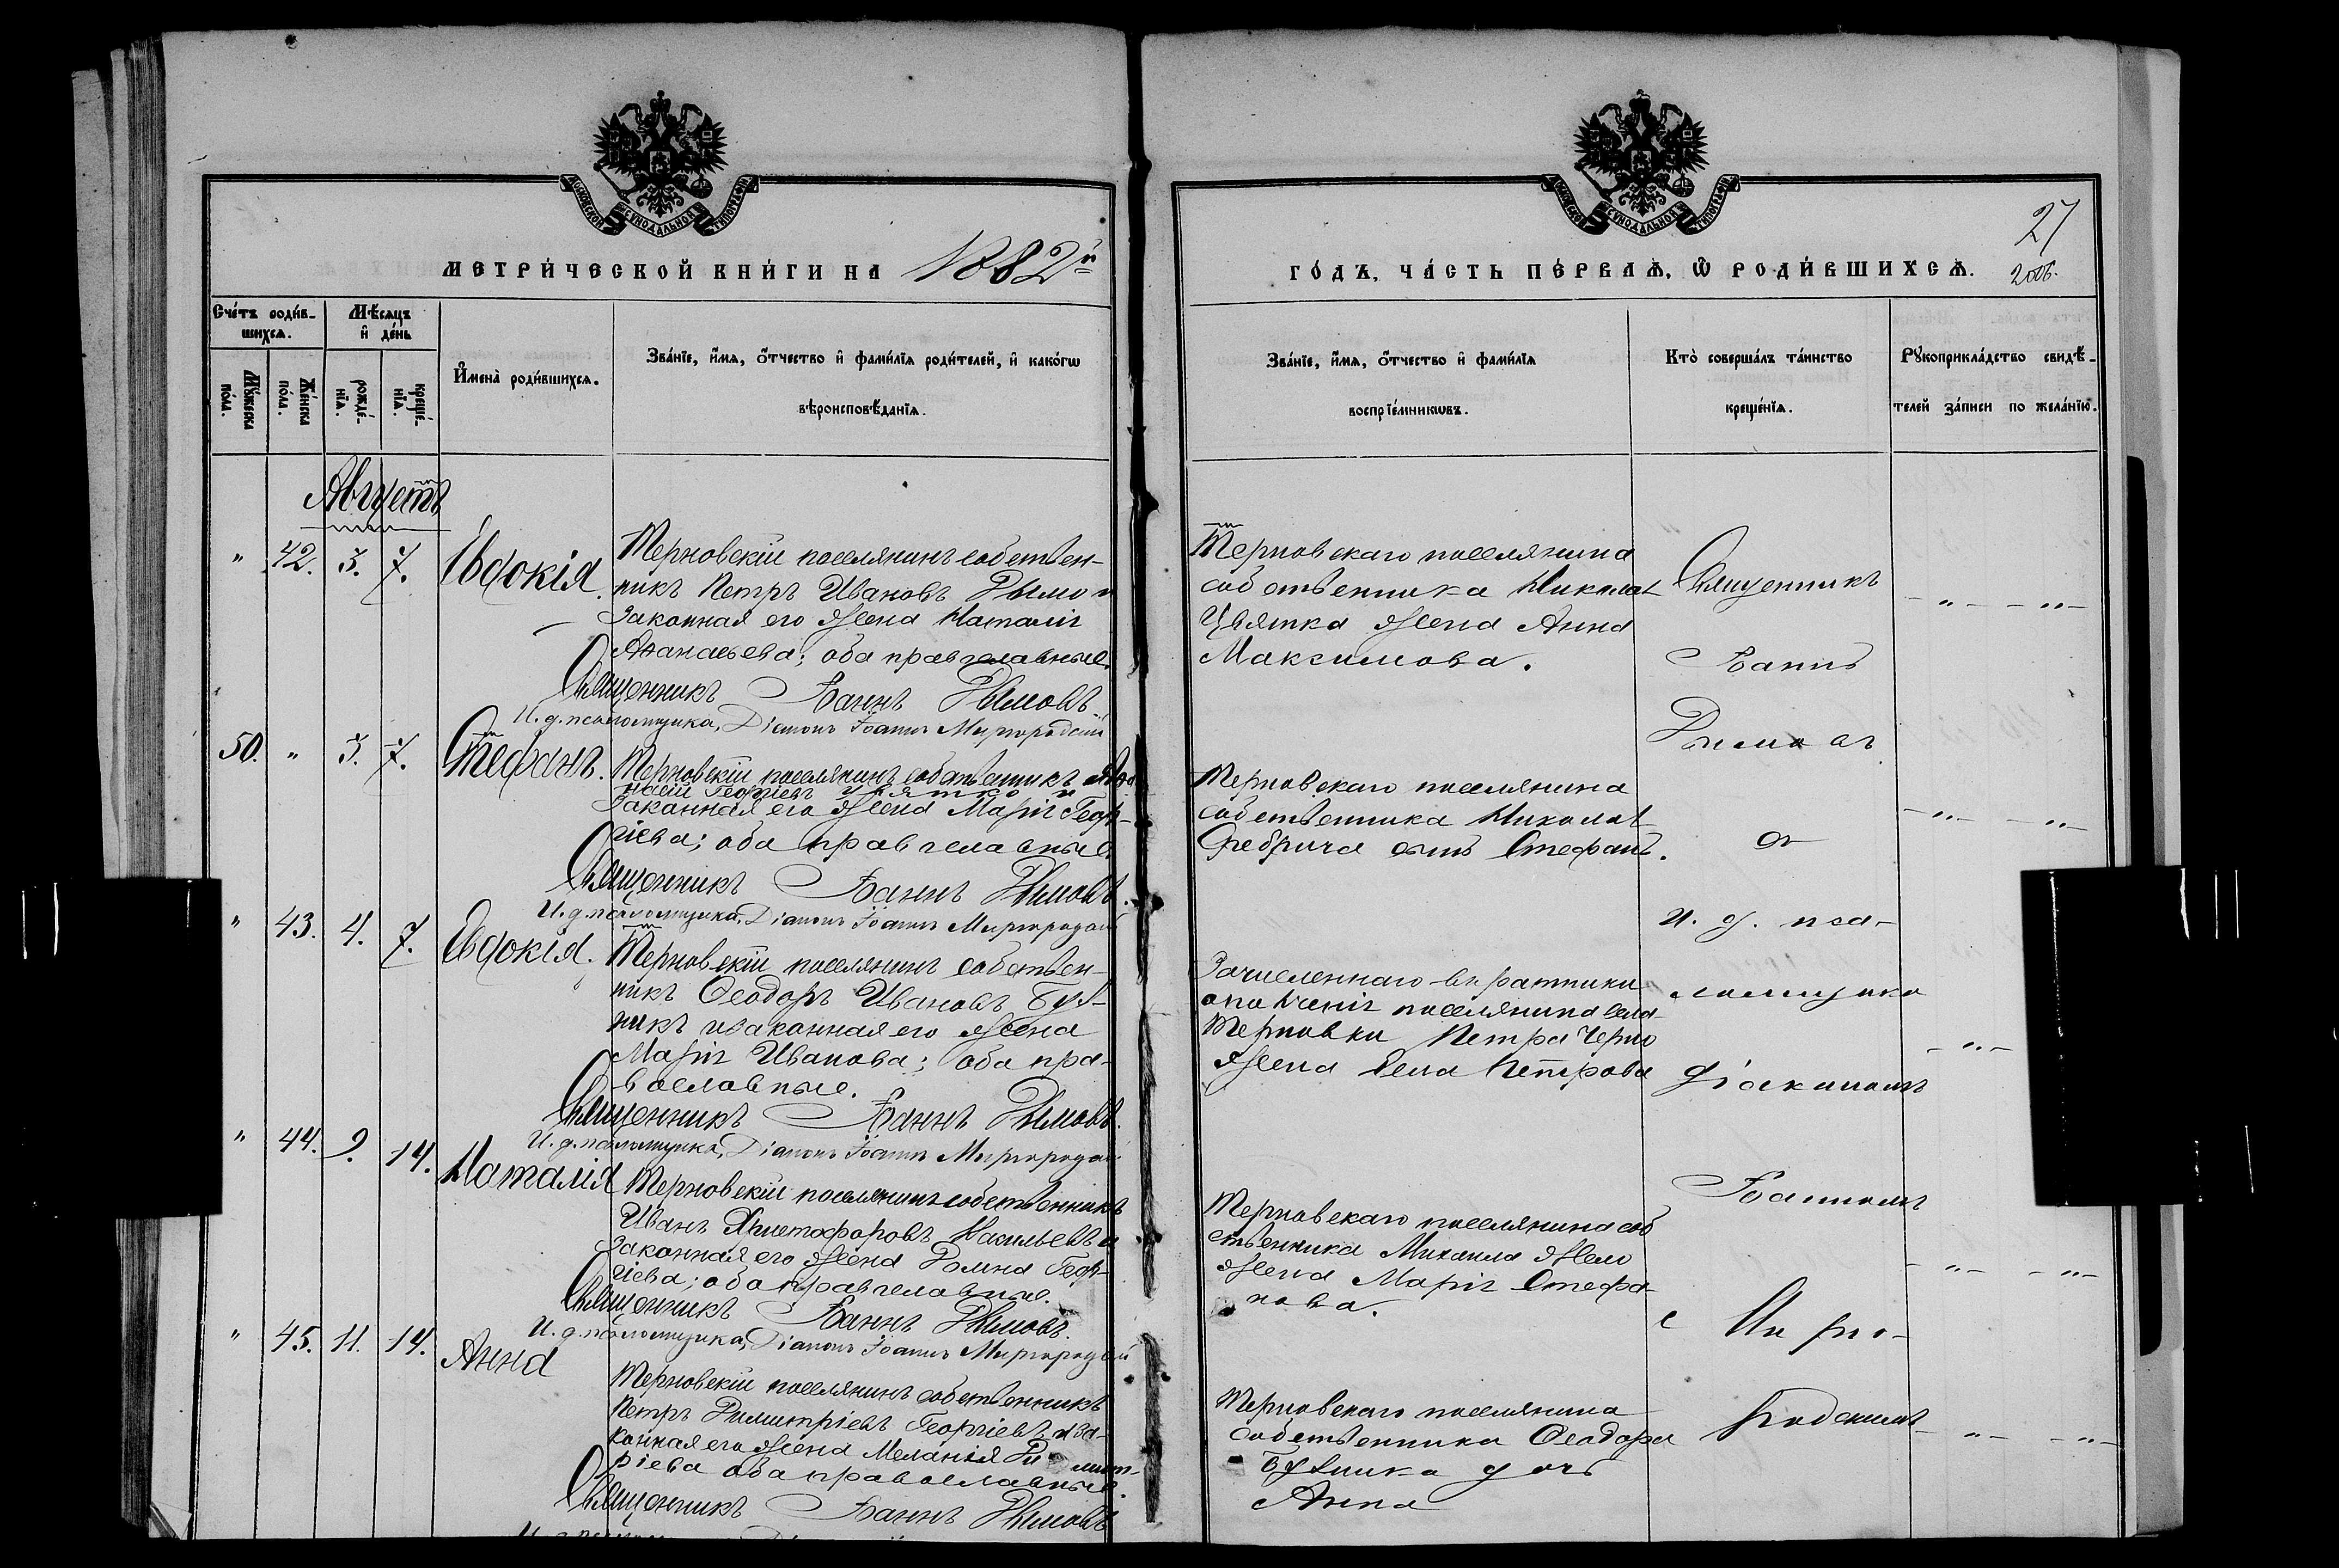 МОСКОВСКОЙ СѴНОДАЛЬНОЙ ТИПОГРАФІИ
МЕТРИ́ЧЕСКОЙ КНИ́ГИ НА 1882й
Сче́тъ роди́в-
шихсѧ.
Мѣ́сѧцъ
и҆ де́нь
Мꙋ́жеска
по́ла.
Же́нска
по́ла.
рожде́-
нїѧ.
креще́-
нїѧ.
И҆мена̀ роди́вшихсѧ.
Зва́нїе, и҆́мѧ, ѻ҆́тчество и҆ фами́лїѧ роди́телей, и҆ како́гѡ
вѣроисповѣ́данїѧ.
Августъ
" 42. 3. 7. Евдокія.
Терновскій поселянинъ собствен-
никъ Петръ Ивановъ Дымо и
законная его жена Наталія
Аѳанасьева; оба православные.
Священникъ Іоаннъ Дымовъ.
И. д. псаломщика, Діаконъ Іоаннъ Миргородскій
50. " 3. 7. Стефанъ.
Терновскій поселянинъ собственникъ Аѳа
насій Георгіевъ Цвятко и
законная его жена Марія Геор-
гіева; оба православные.
Священникъ Іоаннъ Дымовъ.
И. д. псаломщика, Діаконъ Іоаннъ Миргородскій
" 43. 4. 7. Евдокія.
Терновскій поселянинъ собствен-
никъ Ѳеодоръ Ивановъ
никъ и законная его жена
Марія Иванова; оба пра-
вославные.
Священникъ Іоаннъ Дымовъ.
И. д. псаломщика, Діаконъ Іоаннъ Миргородскій
" 44. 9. 14. Наталія
Терновскій поселянинъ собственникъ
Иванъ Христофоровъ Васильевъ и
законная его жена Домна Геор-
гіева; оба православные.
Священникъ Іоаннъ Дымовъ.
И. д. псаломщика, Діаконъ Іоаннъ Миргородскій
" 45. 11. 14. Анна
Терновскій поселянинъ собственникъ
Петръ Димитріевъ Георгіевъ и за-
конная его жена Меланія Димит-
ріева оба православные.
Священникъ Іоаннъ Дымовъ
МОСКОВСКОЙ СѴНОДАЛЬНОЙ ТИПОГРАФІИ
27
ГО́ДЪ, ЧА́СТЬ ПЕ́РВАѦ, Ѡ҆ РОДИ́ВШИХСѦ.
Зва́нїе, и҆́мѧ, ѻ҆́тчество и҆ фами́лїѧ
воспрїе́мникѡвъ.
Кто̀ соверша́лъ та́инство
креще́нїѧ.
Рꙋкоприкла́дство свидѣ́-
телей за́писи по жела́нїю.
Терновскаго поселянина
собственника Николая
Цвятка жена Анна
Максимова.
Терновскаго поселянина
собственника Николая
сынъ Стефанъ.
Зачисленнаго въ ратники
ополченія поселянина села
Терновки Петра Черно
жена Елена Петрова
Терновскаго поселянина соб
ственника Михаила Жело
жена Марія Стефа-
нова.
Терновскаго поселянина
собственника Ѳеодора
дочь
Анна
Священникъ
Іоаннъ
Дымовъ
съ
и. д. пса-
ломщика
діакономъ
Іоанномъ
Мирго-
родскимъ